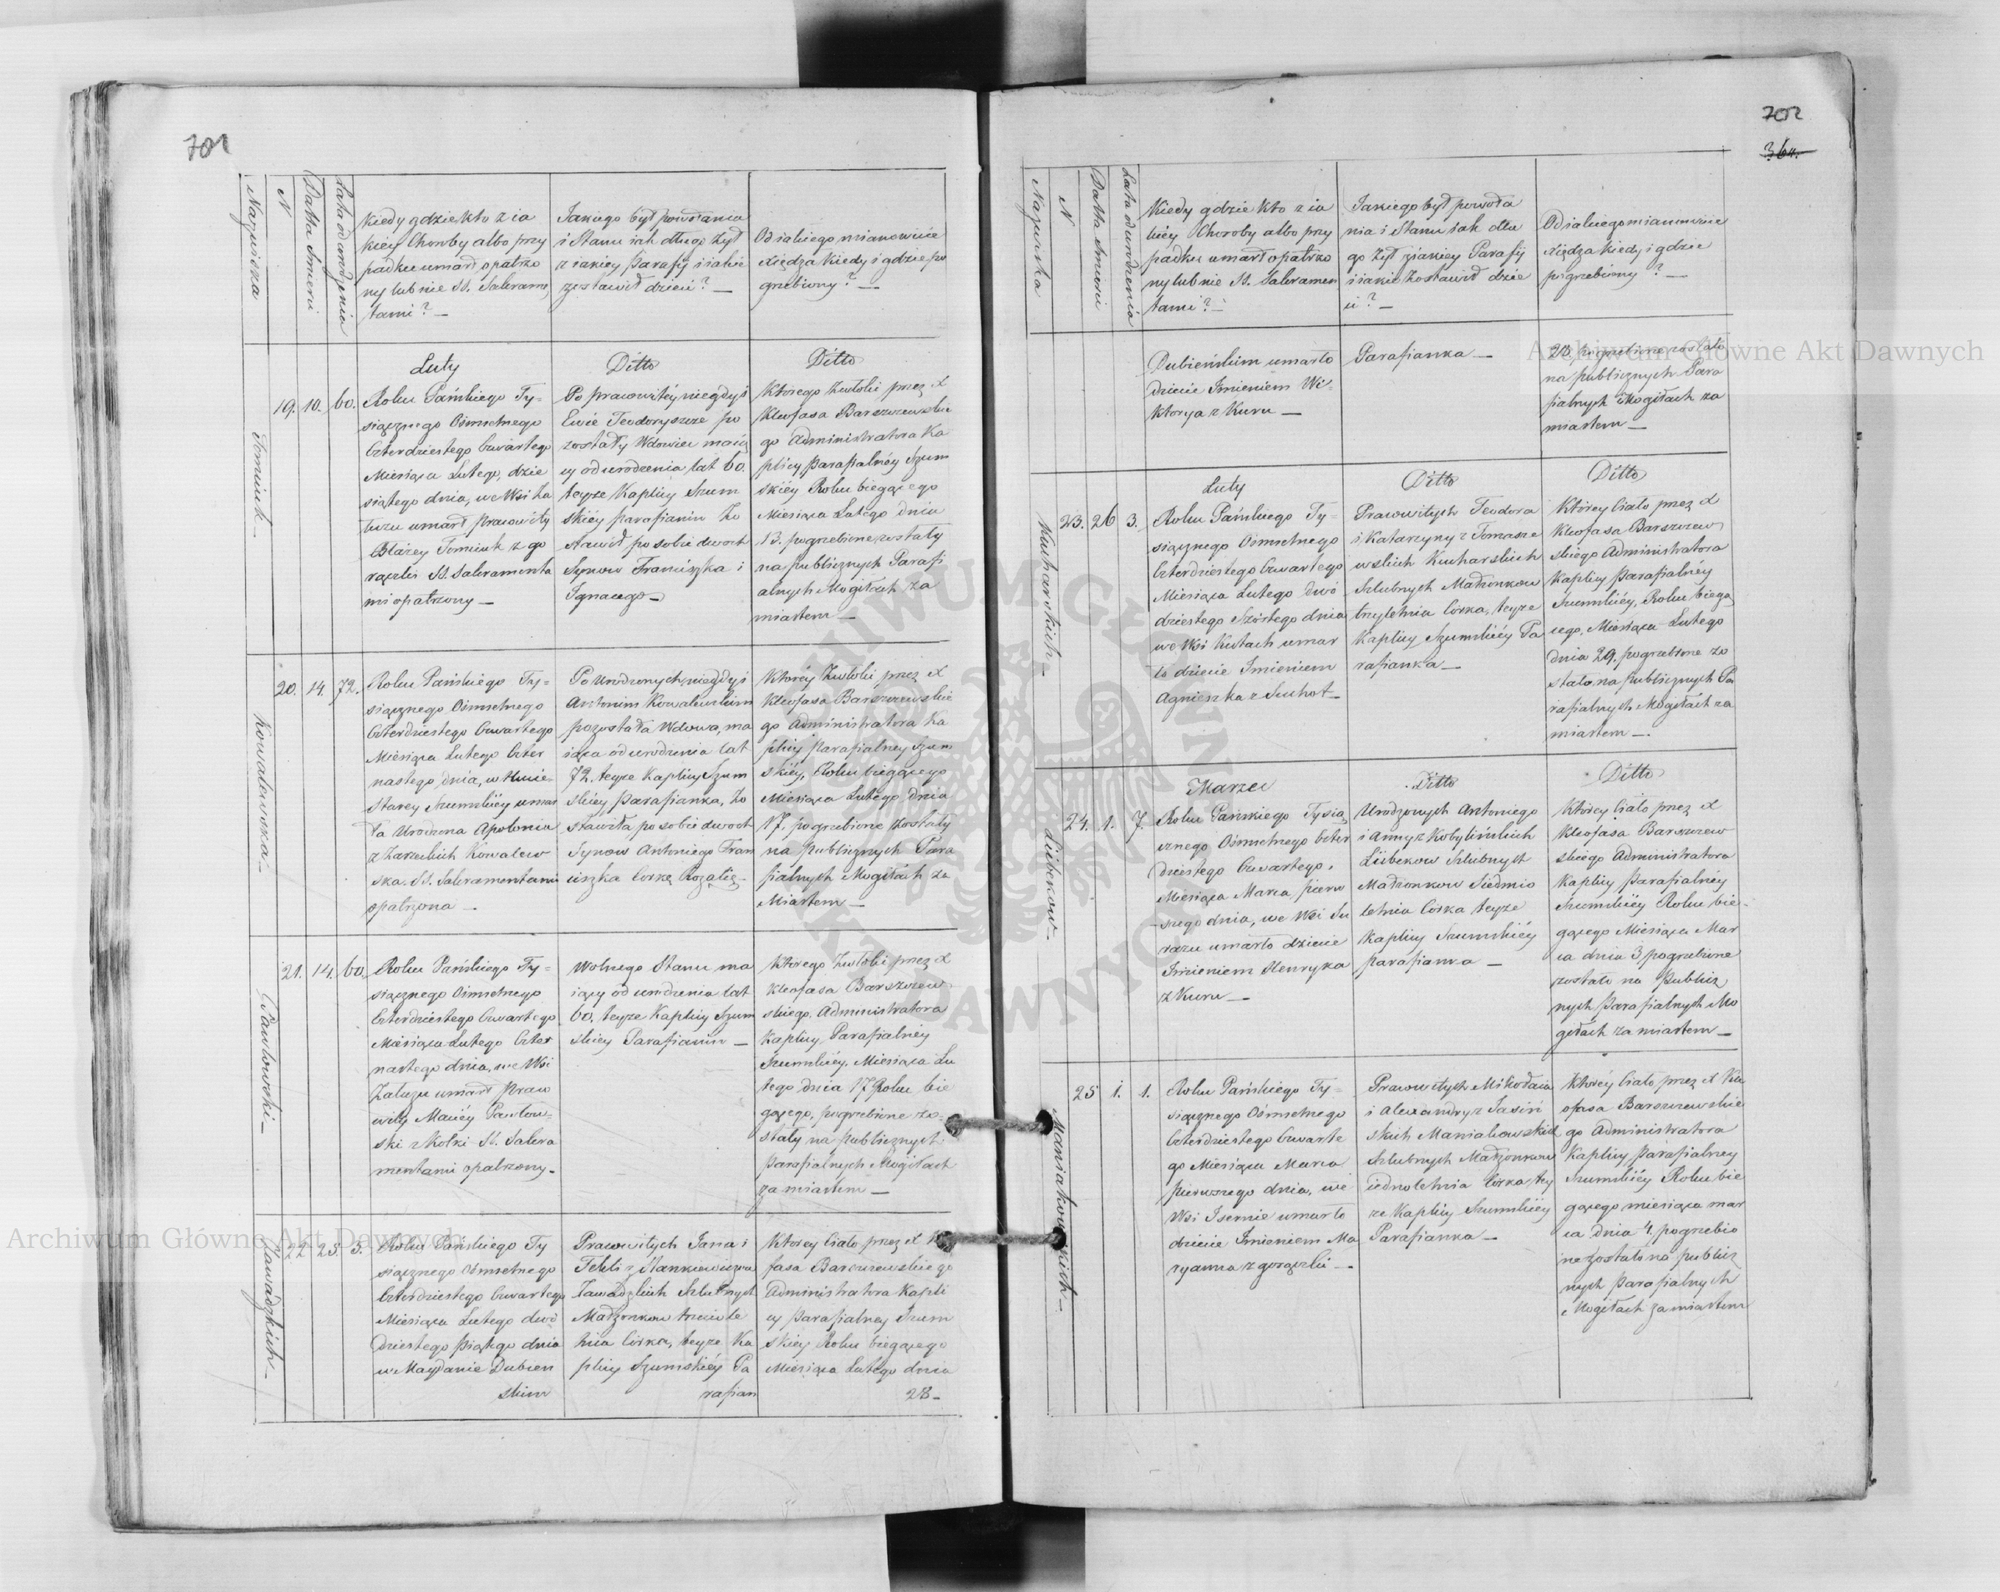 701
Nazwiska
N
Datta Smierci
Lata od urodzenia
Kiedy gdzie kto z ia
kiey Choroby albo przy
padku umarł opatrzo
ny lub nie SS. Sakramen
tami? —
Jakiego był powołania
i Stanu iak długo żył
z iakiey Parafij i iakie
zostawił dzieci? —
Od iakiego mianowicie
Xiędza kiedy i gdzie po
grzebiony? —
Tomiuk
19. 10. 60.
Luty
Roku Pańskiego Ty=
siącznego Ośmsetnego
Czterdziestego Czwartego
Miesiąca Lutego, dzie
siątego dnia, we Wsi Za
łuzu umarł pracowity
Błażey Tomiuk z go
rączki SS. Sakramenta
mi opatrzony —
Ditto
Po pracowitéy niegdyś
Ewie Teodoryszce po
zostały Wdowiec maią
cy od urodzenia lat 60.
teyże Kaplicy Szum
skiéy parafianin Zo
stawił po sobie dwoch
Synow Franciszka i
Ignacego —
Ditto
Którego Zwłoki przez X
Kleofasa Barszczewskie
go Administratora Ka
plicy Parafialnéy Szum
skiéy Roku bieżącego
Miesiąca Lutego dnia
13. pogrzebione zostały
na publicznych Parafi
alnych Mogiłach za
miastem —
Kowalewska
20. 14 72.
Roku Pańskiego Ty=
siącznego Ośmsetnego
Czterdziestego Czwartego
Miesiąca Lutego Czter
nastego dnia, w Hucie
Starey Szumskiéy umar
ła Urodzona Apolonia
z Zarzeckich Kowalew
ska. SS. Sakramentami
opatrzona —
Po Urodzonych, niegdyś
Antonim Kowalewskim
pozostała Wdowa, ma
iąca od urodzenia lat
72. teyże Kaplicy Szum
skiéy Parafianka, Zo
stawiła po sobie dwoch
Synow Antoniego Fran
ciszka Corkę Rozalię —
Ktoréy Zwłoki przez X
Kleofasa Barszczewskie
go Administratora Ka
plicy parafialney Szum
skiéy, Roku bieżącego
Miesiąca Lutego dnia
17. pogrzebione zostały
na publicznych Para
fialnych Mogiłach za
Miastem —
Pawłowski
21. 14. 60.
Roku Pańskiego Ty=
siącznego Ośmsetnego
Czterdziestego Czwartego
Miesiąca Lutego Czter
nastego dnia, we Wsi
Załuzu umarł Praco
wity Maciéy Pawłow
ski z Kolki SS. Sakra
mentami opatrzony —
Wolnego Stanu ma
iący od urodzenia lat
60. teyże Kaplicy Szum
skiéy Parafianin —
Ktorego Zwłoki przez X
Kleofasa Barszczew
skiego Administratora
Kaplicy Parafialnéy
Szumskiéy, Miesiąca Lu
tego dnia 17 Roku bie
gącego, pogrzebione zo
stały na publicznych
Parafialnych Mogiłach
za miastem —
Zawadzkich
22. 25 3.
Roku Pańskiego Ty
siącznego Ośmsetnego
Czterdziestego Czwartego
Miesiąca Lutego dwó
dziestego Piątego dnia
w Maydanie Dubien
skim
Pracowitych Jana i
Tekli z Stankiewiczow
Zawadzkich Szlubnych
Małżonkow trzechle
tnia Corka, teyże Ka
plicy Szumskiéy Pa
rafian
Ktorey Ciało przez X Kleo
fasa Barszczewskiego
Administratora Kapli
cy Parafialney Szum
skiey Roku bieżącego
Miesiąca Lutego dnia
28 —
702
364.
Nazwiska
N
Datta Smierci
Lata od urodzenia
Kiedy gdzie kto z ia
kiéy Choroby albo przy
padku umarł opatrzo
ny lub nie SS. Sakramen
tami? —
Jakiego był powoła
nia i Stanu iak dłu
go żył z iakiey Parafij
i iakie zostawił dzie
ci? —
Od iakiego mianowicie
Xiędza kiedy i gdzie
pogrzebiony? —
Dubieńskim umarło
dziecie Imieniem Wi=
ktorya z Kuru —
Parafianka —
28 pogrzebione zostało
na publicznych Para
fialnych Mogiłach za
miastem —
Kucharskich
23. 26 3.
Luty
Roku Pańskiego Ty=
siącznego Ośmsetnego
Czterdziestego Czwartego
Miesiąca Lutego dwó
dziestego Szóstego dnia
we Wsi Kutach umar
ło dziecie Imieniem
Agnieszka z Suchot —
Ditto
Pracowitych Teodora
i Katarzyny z Tomasze
wskich Kucharskich
Szlubnych Małżonkow
trzyletnia Corka, teyże
Kaplicy Szumskiéy Pa
rafianka —
Ditto
Ktorey Ciało przez X
Kleofasa Barszczew
skiego Administratora
Kaplicy Parafialnéy
Szumskiéy, Roku bieżą
cego, Miesiąca Lutego
dnia 29. pogrzebione zo
stało, na publicznych Pa
rafialnych Mogiłach za
miastem —
Lisbekow
24. 1. 7.
Marzec
Roku Pańskiego Tysią
cznego Ośmsetnego Czter
dziestego Czwartego
Miesiąca Marca pierw
szego dnia, we Wsi Su
rażu umarło dziecie
Imieniem Henryka
z Kuru —
Ditto
Urodzonych Antoniego
i Anny z Kobylińskich
Lisbekow Szlubnych
Małżonkow Siedmio
letnia Corka teyże
Kaplicy Szumskiéy
Parafianka —
Ditto
Ktorey Ciało przez X
Kleofasa Barszczew
skiego Administratora
Kaplicy Parafialnéy
Szumskiéy Roku bie
gącego Miesiąca Mar
ca dnia 3 pogrzebione
zostało na Publicz
nych Parafialnych Mo
giłach za miastem —
Maniakowskich
25 1. 1.
Roku Pańskiego Ty=
siącznego Ośmsetnego
Czterdziestego Czwarte
go Miesiąca Marca
pierwszego dnia, we
Wsi Isernie umarło
dziecie Imieniem Ma
ryanna z gorączki —
Pracowitych Mikołaia
i Alexandry z Jasiń
skich Maniakowskich
Szlubnych Małżonkow
iednoletnia Corka tey
że Kaplicy Szumskiéy
Parafianka —
Ktoréy Ciało przez X Kle
ofasa Barszczewskie
go Administratora
Kaplicy Parafialney
Szumskiéy Roku bie
gącego miesiąca mar
ca dnia 4 pogrzebio
ne zostało na publicz
nych Parafialnych
Mogiłach za miastem
Archiwum Główne Akt Dawnych
Archiwum Główne Akt Dawnych
ARCHIWUM GŁÓWNE AKT DAWNYCH